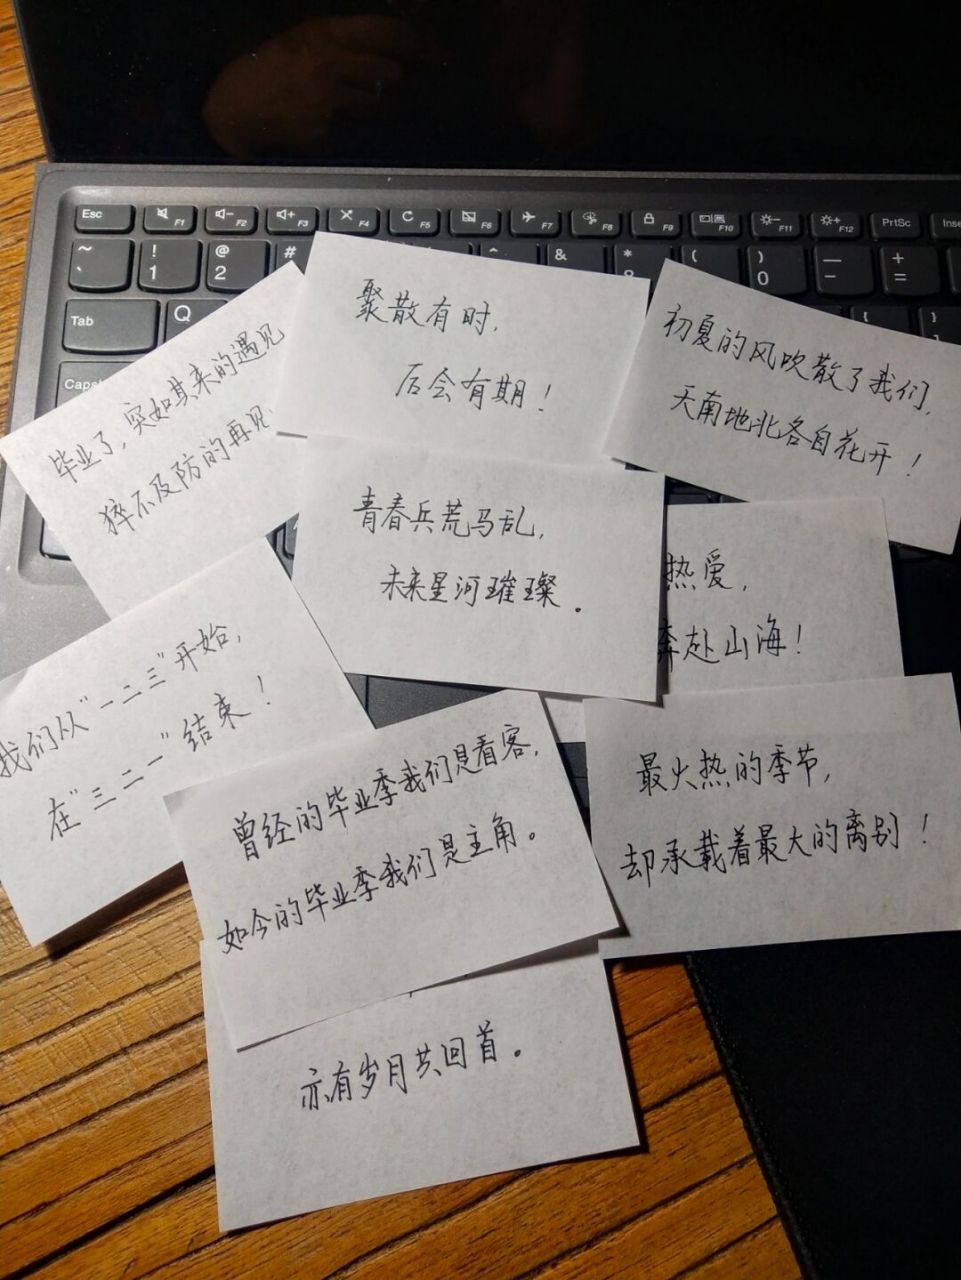 Esc
F1
F2
F3
F4
F5
F6
F7
F8
F9
F10
F11
F12
PrtSc
Inse
~ ` ! 1 @ 2 # & * ( ) 0 — - + =
Tab Q { [ } ]
Caps
毕业了,突如其来的遇见
猝不及防的再见
聚散有时,
后会有期!
初夏的风吹散了我们,
天南地北各自花开!
青春兵荒马乱,
未来星河璀璨.
热爱,
奔赴山海!
我们从“一二三”开始,
在“三二一”结束!
曾经的毕业季我们是看客,
如今的毕业季我们是主角。
最火热的季节,
却承载着最大的离别!
亦有岁月共回首。